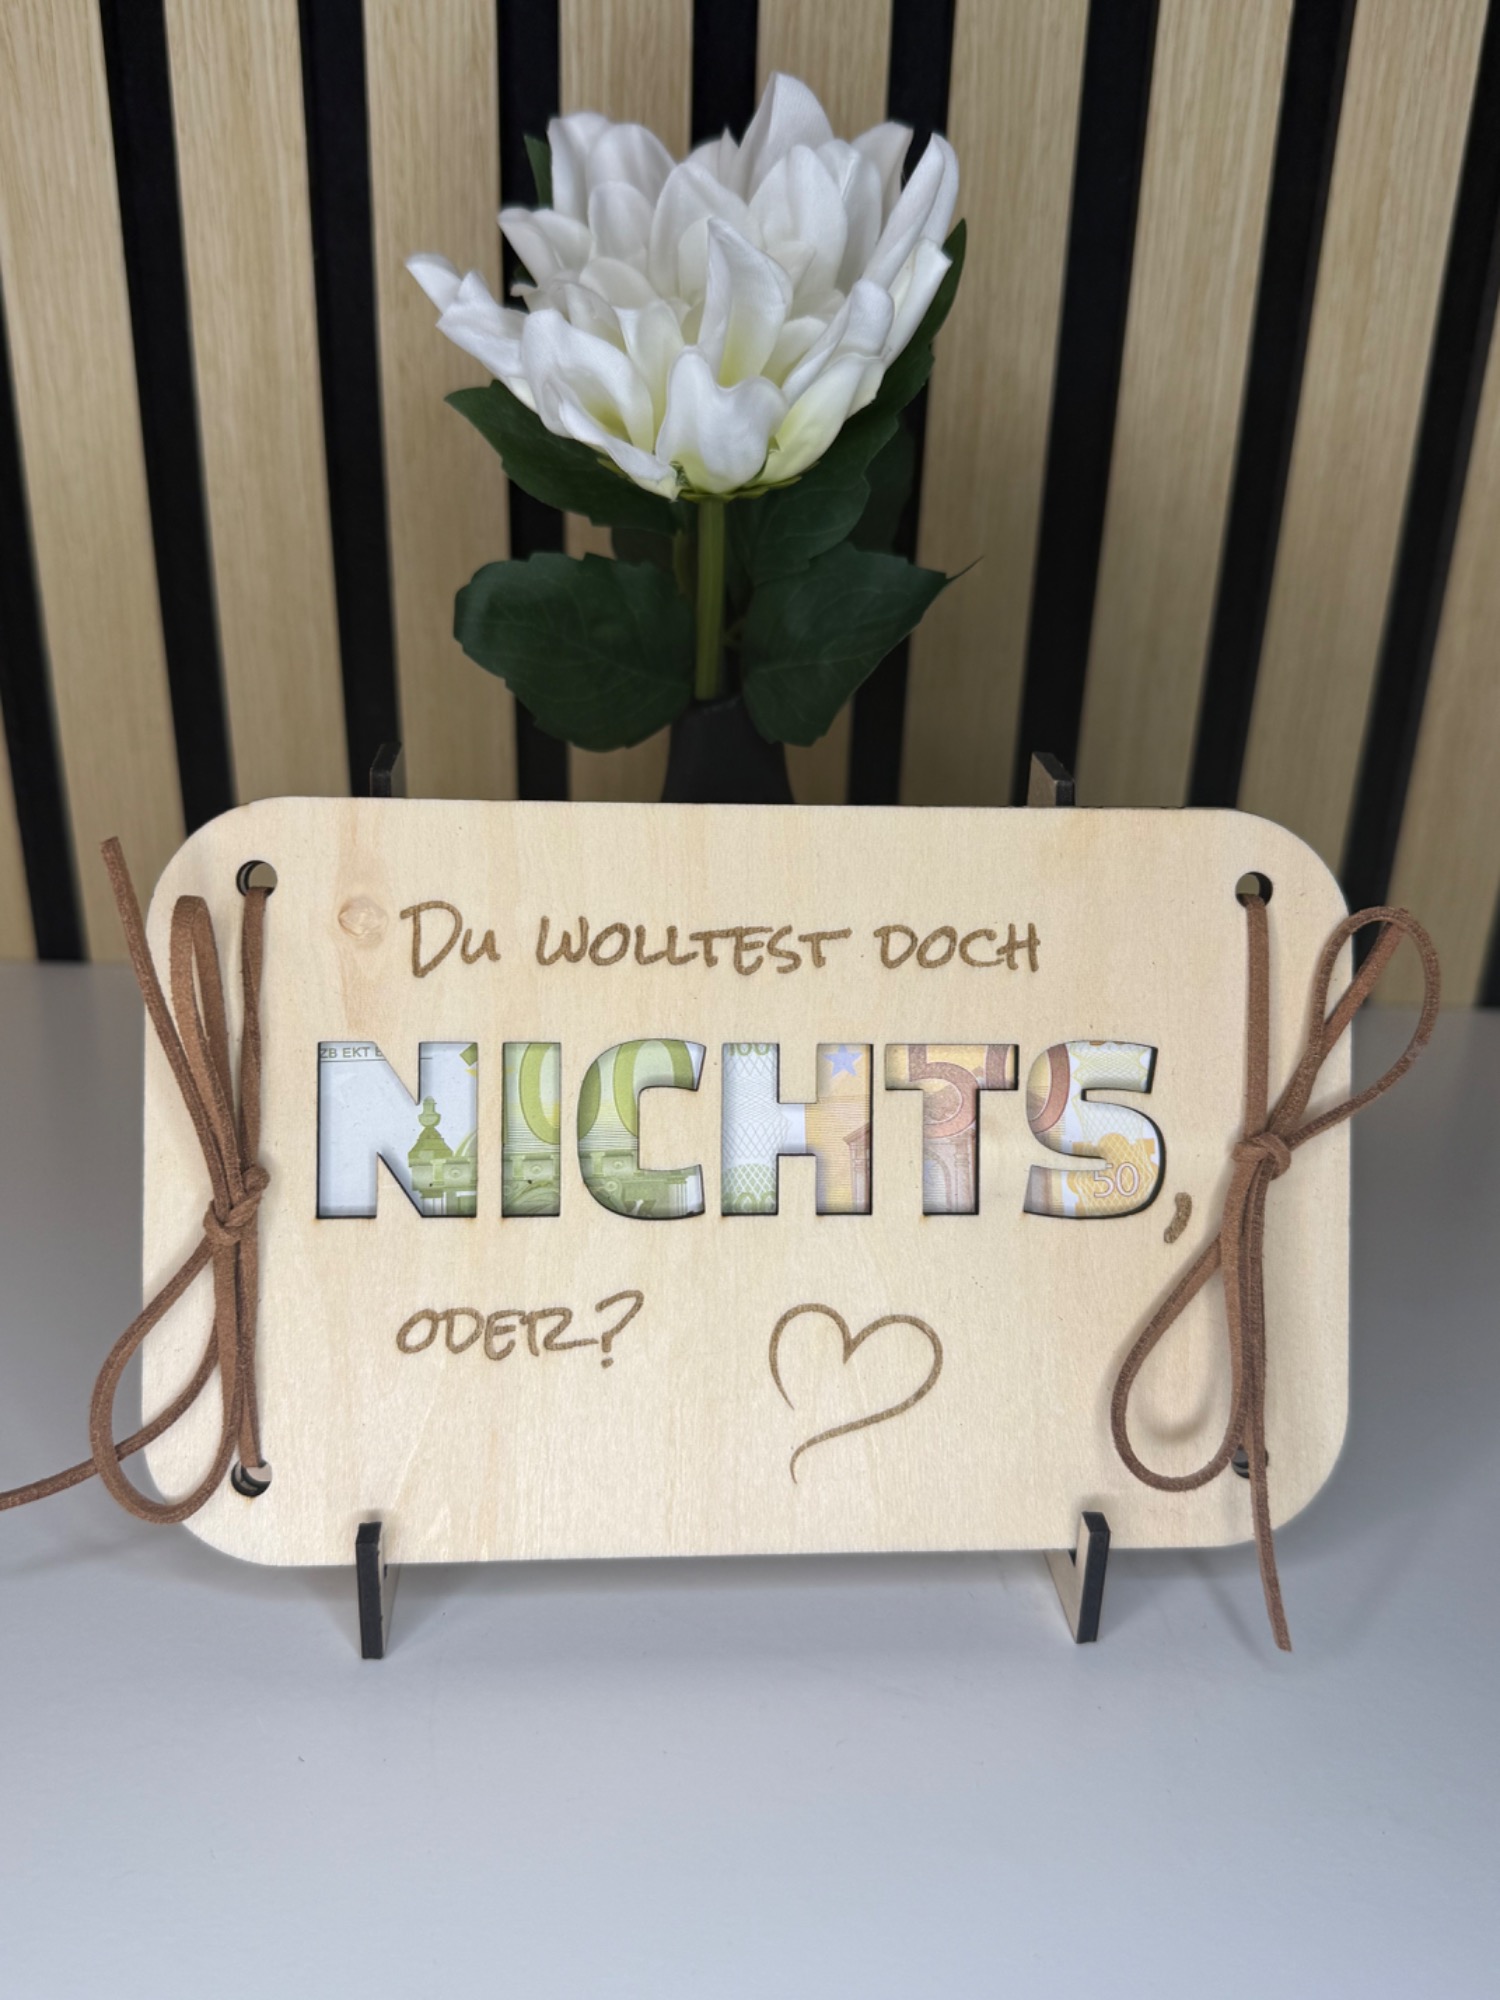 Du wolltest doch
NICHTS,
oder?
ZB EKT E
100
100
50
50